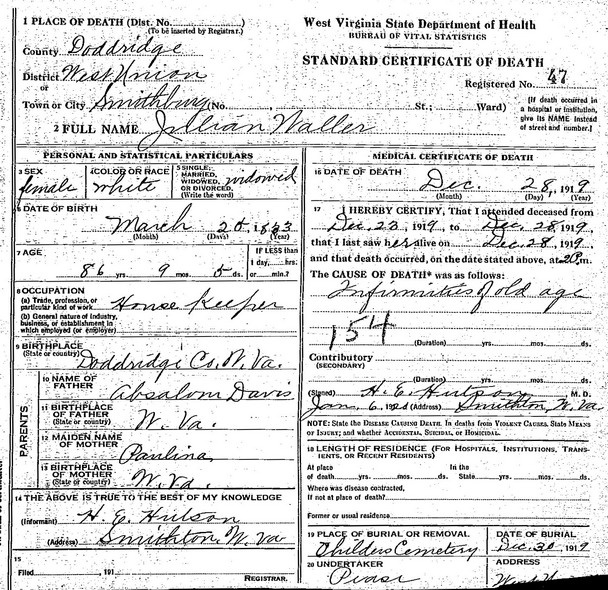 1 PLACE OF DEATH (Dist. No.
(To be inserted by Registrar.)
County Doddridge
District West Union
or
Town or City Smithburg (No. , St.; Ward)
2 FULL NAME Jillian Waller
West Virginia State Department of Health
BUREAU OF VITAL STATISTICS
STANDARD CERTIFICATE OF DEATH
Registered No. 47
[If death occurred in
a hospital or institution,
give its NAME instead
of street and number.]
PERSONAL AND STATISTICAL PARTICULARS
3 SEX
female
4 COLOR OR RACE
white
5 SINGLE,
MARRIED,
WIDOWED,
OR DIVORCED.
(Write the word)
widowed
6 DATE OF BIRTH
March 23, 1833
(Month) (Day) (Year)
7 AGE
86 yrs. 9 mos. 5 ds.
IF LESS than
1 day, hrs.
or min.?
8 OCCUPATION
(a) Trade, profession, or
particular kind of work House Keeper
(b) General nature of industry,
business, or establishment in
which employed (or employer)
9 BIRTHPLACE
(State or country) Doddridge Co. W. Va.
PARENTS
10 NAME OF
FATHER Absalom Davis
11 BIRTHPLACE
OF FATHER
(State or country) W. Va.
12 MAIDEN NAME
OF MOTHER Paulina
13 BIRTHPLACE
OF MOTHER
(State or country) W. Va.
14 THE ABOVE IS TRUE TO THE BEST OF MY KNOWLEDGE
(Informant) H. E. Hutson
(Address) Smithton, W. Va
15
Filed , 191
REGISTRAR.
MEDICAL CERTIFICATE OF DEATH
16 DATE OF DEATH
Dec. 28, 1919
(Month) (Day) (Year)
17 I HEREBY CERTIFY, That I attended deceased from
Dec. 23, 1919, to Dec. 28, 1919
that I last saw her alive on Dec. 28, 1919,
and that death occurred, on the date stated above, at m.
The CAUSE OF DEATH* was as follows:
Infirmities of old age
154
(Duration) yrs. mos. ds.
Contributory
(SECONDARY)
(Duration) yrs. mos. ds.
(Signed) H. E. Hutson, M. D.
Jan. 6, 1920 (Address) Smithton, W. Va
NOTE: State the DISEASE CAUSING DEATH. In deaths from VIOLENT CAUSES, STATE MEANS
OF INJURY; and whether ACCIDENTAL, SUICIDAL, OR HOMICIDAL.
18 LENGTH OF RESIDENCE (FOR HOSPITALS, INSTITUTIONS, TRANS-
IENTS, OR RECENT RESIDENTS)
At place In the
of death yrs. mos. ds. State yrs. mos. ds.
Where was disease contracted,
if not at place of death?
Former or usual residence
19 PLACE OF BURIAL OR REMOVAL
Childers Cemetery
DATE OF BURIAL
Dec. 30, 1919
20 UNDERTAKER
Pease
ADDRESS